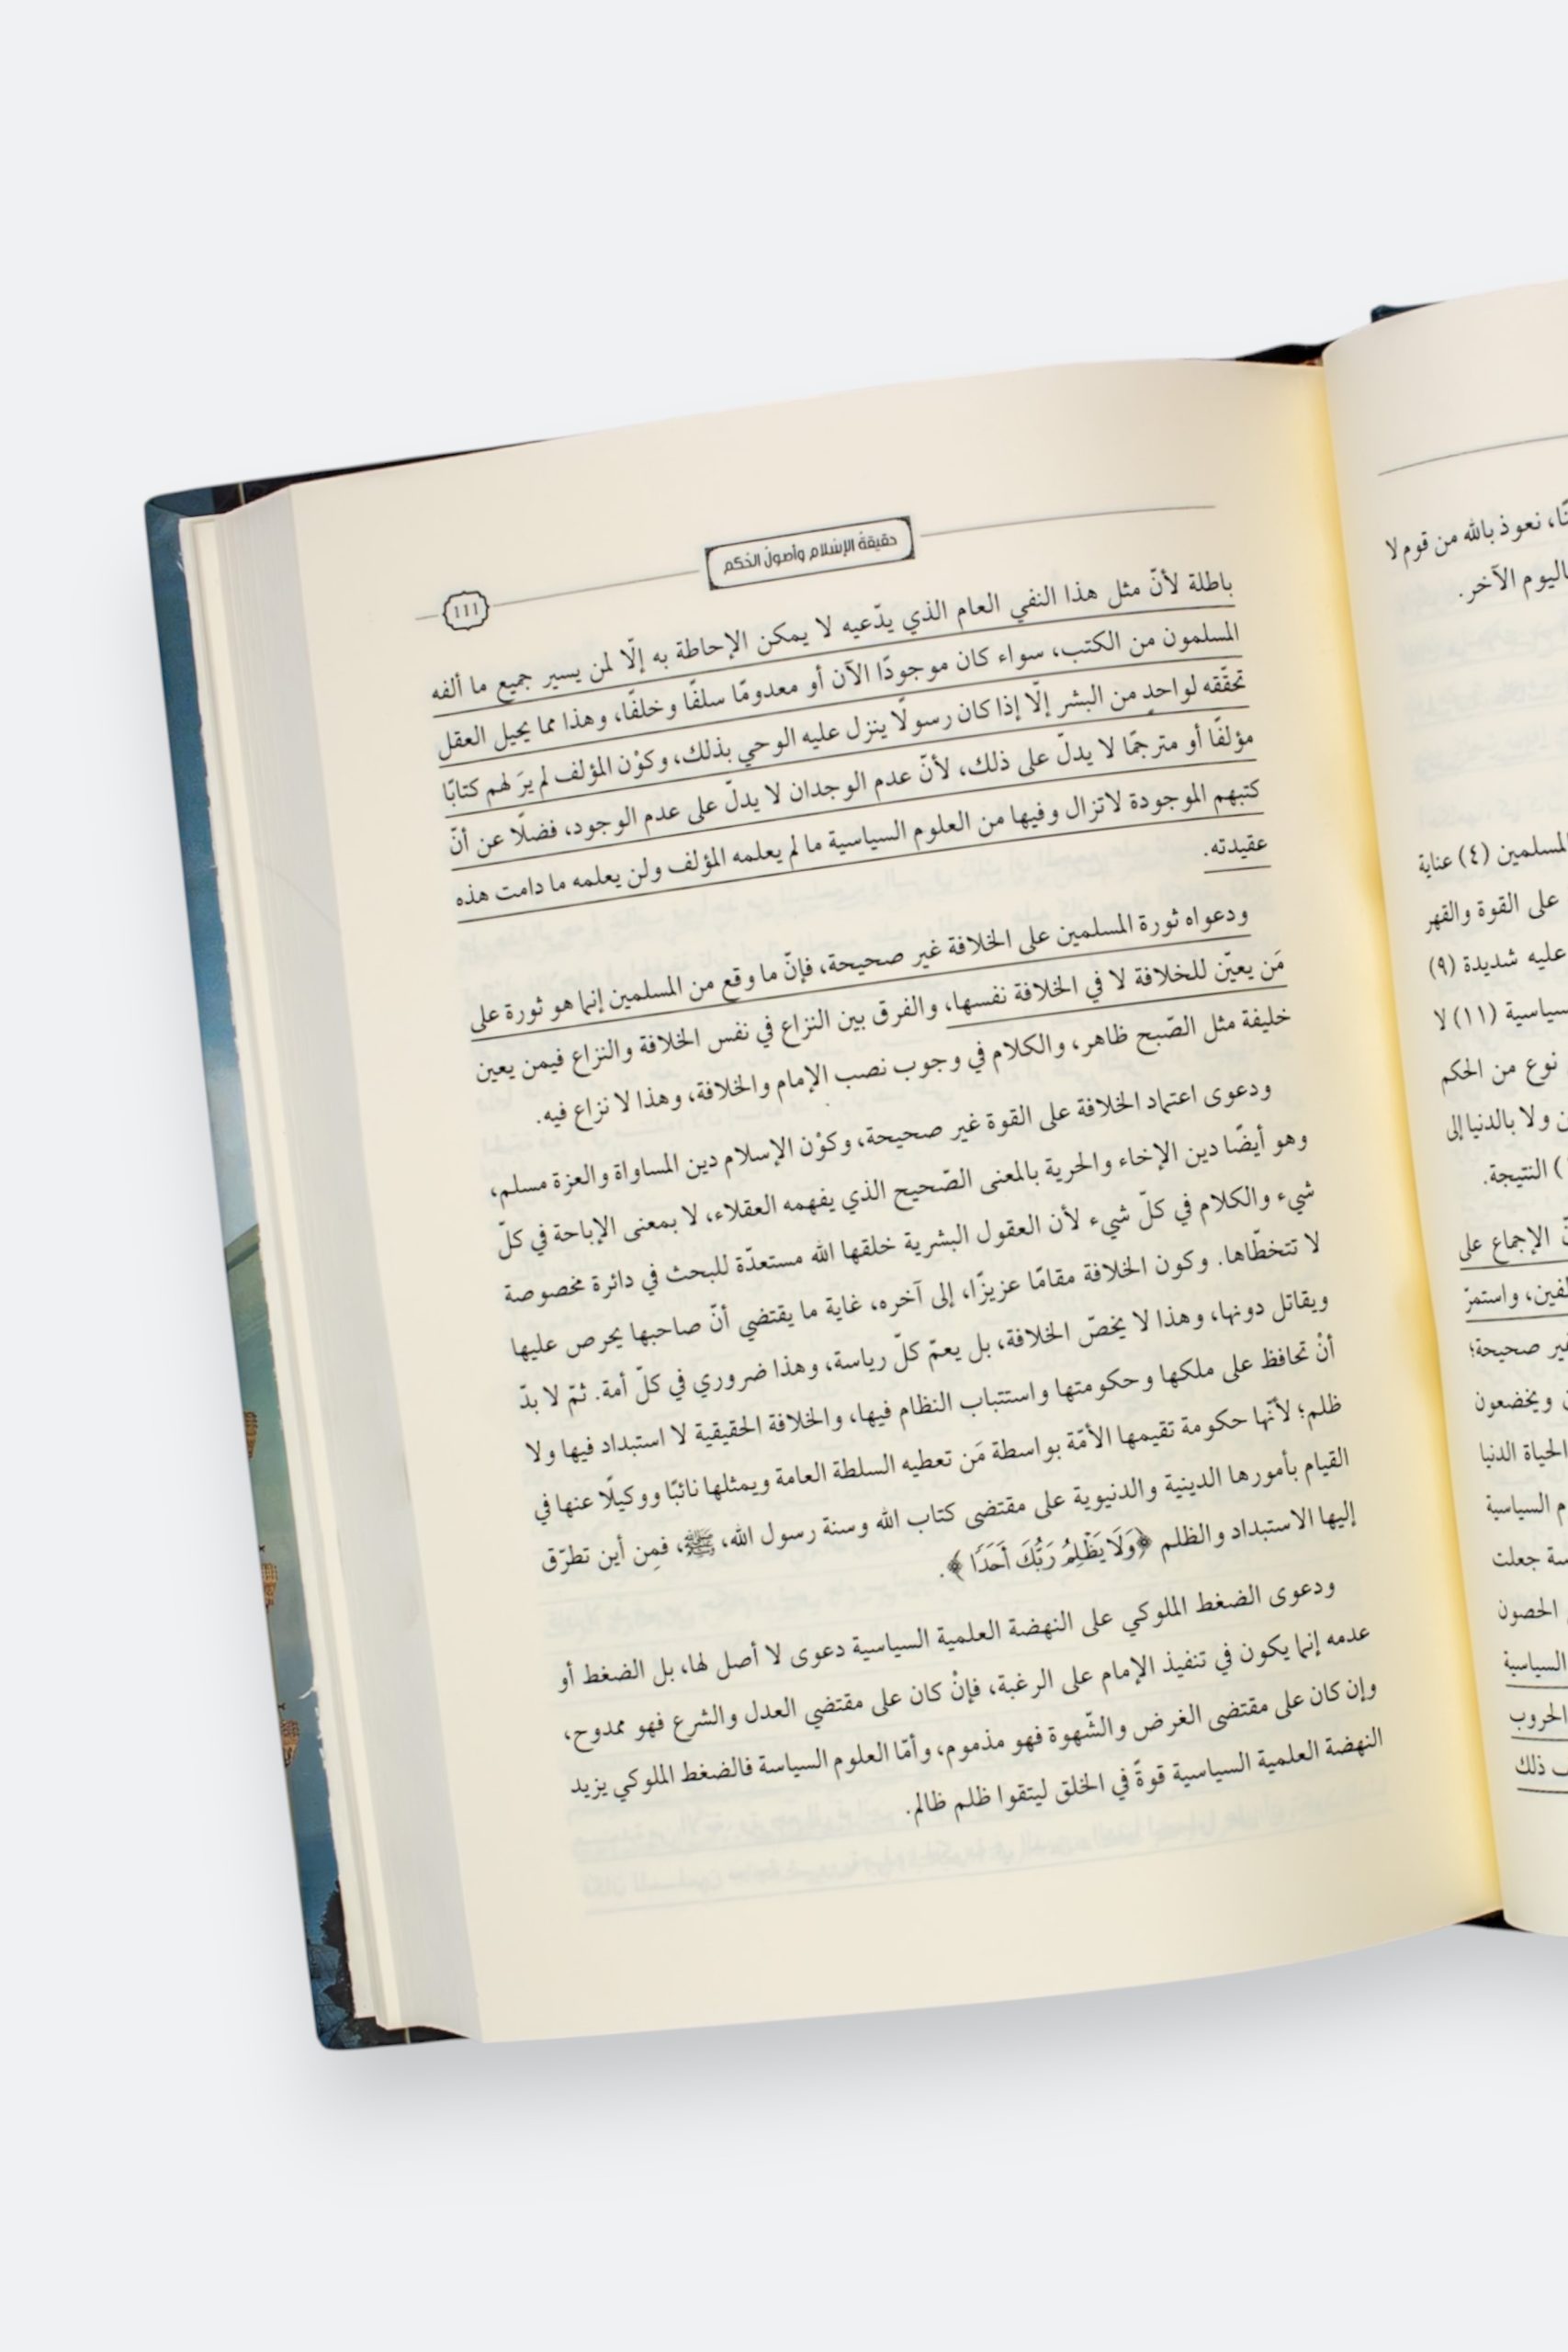 نعوذ بالله من قوم لا
الآخر.
(٤) عناية
على القوة والقهر
عليه شديدة (٩)
(١١) لا
نوع من الحكم
ولا بالدنيا إلى
) النتيجة.
الإجماع على
واستمرّ
صحيحة؛
ويخضعون
الحياة الدنيا
السياسية
جعلت
الحصون
السياسية
الحروب
ذلك
حقيقة الإسلام وأصول الحكم
١١١
باطلة لأنّ مثل هذا النفي العام الذي يدّعيه لا يمكن الإحاطة به إلّا لمن يسير جميع ما ألفه
المسلمون من الكتب، سواء كان موجودًا الآن أو معدومًا سلفًا وخلفًا، وهذا مما يحيل العقل
تحقّقه لواحدٍ من البشر إلّا إذا كان رسولًا ينزل عليه الوحي بذلك، وكوْن المؤلف لم يرَ لهم كتابًا
مؤلفًا أو مترجمًا لا يدلّ على ذلك، لأنّ عدم الوجدان لا يدلّ على عدم الوجود، فضلًا عن أنّ
كتبهم الموجودة لاتزال وفيها من العلوم السياسية ما لم يعلمه المؤلف ولن يعلمه ما دامت هذه
عقيدته.
ودعواه ثورة المسلمين على الخلافة غير صحيحة، فإنّ ما وقع من المسلمين إنما هو ثورة على
مَن يعيّن للخلافة لا في الخلافة نفسها، والفرق بين النزاع في نفس الخلافة والنزاع فيمن يعين
خليفة مثل الصّبح ظاهر، والكلام في وجوب نصب الإمام والخلافة، وهذا لا نزاع فيه.
ودعوى اعتماد الخلافة على القوة غير صحيحة، وكوْن الإسلام دين المساواة والعزة مسلم،
وهو أيضًا دين الإخاء والحرية بالمعنى الصّحيح الذي يفهمه العقلاء، لا بمعنى الإباحة في كلّ
شيء والكلام في كلّ شيء لأن العقول البشرية خلقها الله مستعدّة للبحث في دائرة مخصوصة
لا تتخطّاها. وكون الخلافة مقامًا عزيزًا، إلى آخره، غاية ما يقتضي أنّ صاحبها يحرص عليها
ويقاتل دونها، وهذا لا يخصّ الخلافة، بل يعمّ كلّ رياسة، وهذا ضروري في كلّ أمة. ثمّ لا بدّ
أنْ تحافظ على ملكها وحكومتها واستتباب النظام فيها، والخلافة الحقيقية لا استبداد فيها ولا
ظلم؛ لأنّها حكومة تقيمها الأمّة بواسطة مَن تعطيه السلطة العامة ويمثلها نائبًا ووكيلًا عنها في
القيام بأمورها الدينية والدنيوية على مقتضى كتاب الله وسنة رسول الله، ﷺ، فمِن أين تطرّق
إليها الاستبداد والظلم ﴿وَلَا يَظْلِمُ رَبُّكَ أَحَدًا﴾.
ودعوى الضغط الملوكي على النهضة العلمية السياسية دعوى لا أصل لها، بل الضغط أو
عدمه إنما يكون في تنفيذ الإمام على الرغبة، فإنْ كان على مقتضي العدل والشرع فهو ممدوح،
وإن كان على مقتضى الغرض والشّهوة فهو مذموم، وأمّا العلوم السياسة فالضغط الملوكي يزيد
النهضة العلمية السياسية قوةً في الخلق ليتقوا ظلم ظالم.